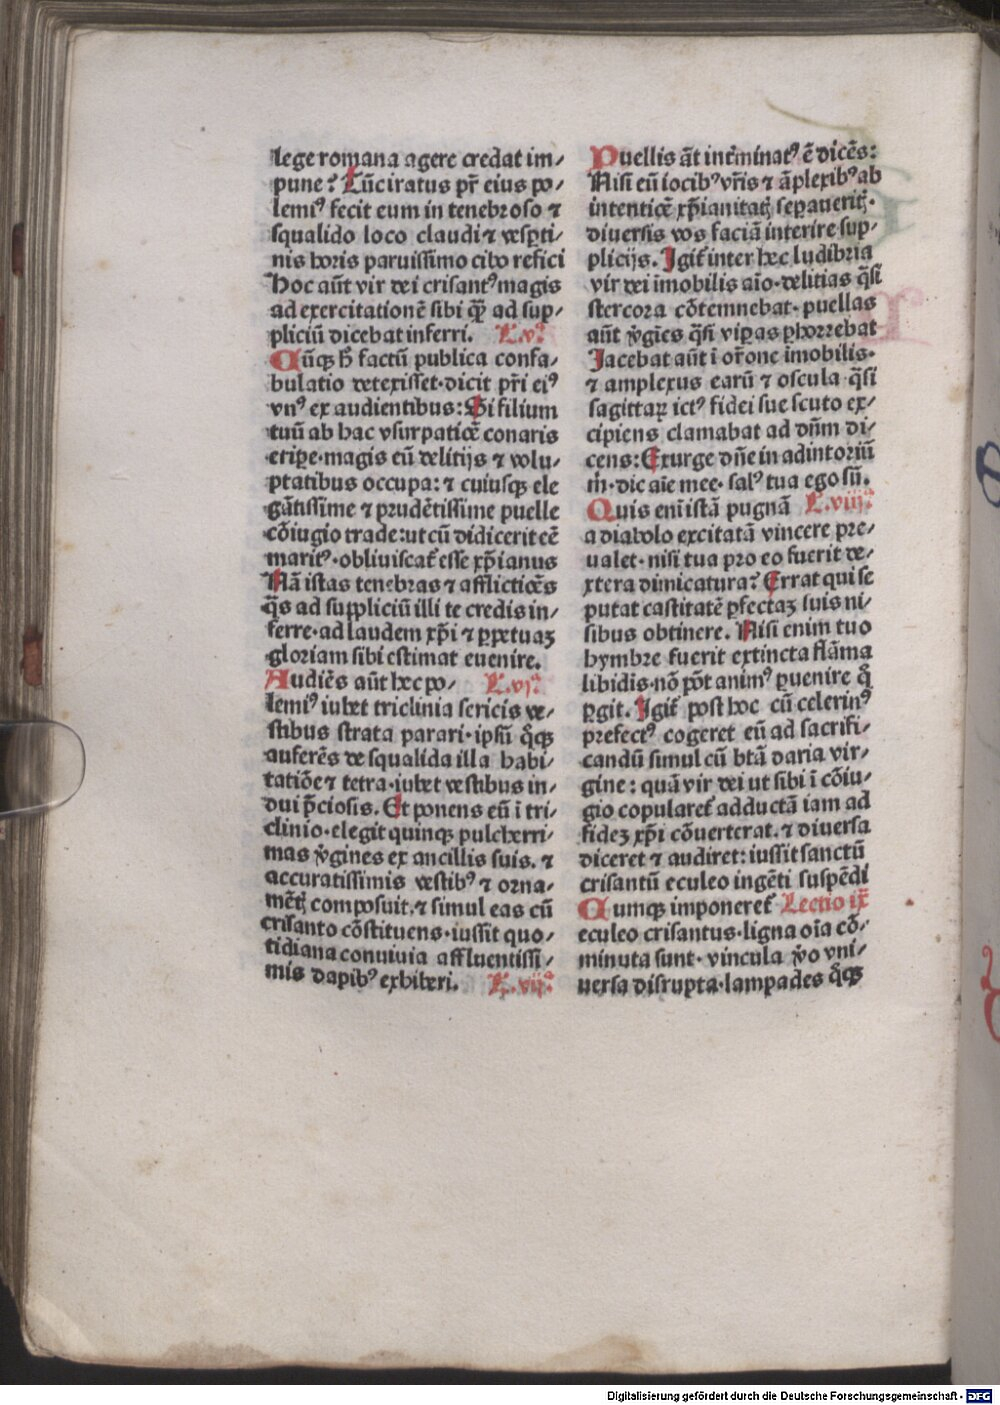 lege romana agere credat im⸗
pune? Tūc iratus pr̄ eius po⸗
lemiꝰ fecit eum in tenebroso ⁊
squalido loco claudi ⁊ vesꝑti⸗
nis horis paruissimo cibo refici
Hoc aūt vir dei crisantꝰ magis
ad exercitationē sibi q̄ꝫ ad sup⸗
pliciū dicebat inferri. L.vᵃ.
Cūqꝫ h̄ factū publica confa⸗
bulatio detexisset·dicit pr̄i eiꝰ
vnꝰ ex audientibus: Si filium
tuū ab hac vsurpatiōe conaris
eriꝑe·magis eū delitijs ⁊ volu⸗
ptatibus occupa: ⁊ cuiusqꝫ ele
gātissime ⁊ prudētissime puelle
cōiugio trade: ut cū didicerit eē
maritꝰ·obliuiscat̄ esse xp̄ianus
Nā istas tenebras ⁊ afflictiōes
q̄s ad suppliciū illi te credis in⸗
ferre·ad laudem xp̄i ⁊ ꝑpetuaꝫ
gloriam sibi estimat euenire.
Audiēs aūt hec po⸗ L.vjᵃ.
lemiꝰ iubet triclinia sericis ve⸗
stibus strata parari·ipsū q̊qꝫ
auferēs de squalida illa habi⸗
tatiōe ⁊ tetra·iubet vestibus in⸗
dui p̄ciosis. Et ponens eū ī tri⸗
clinio·elegit quinqꝫ pulcherri⸗
mas v̊gines ex ancillis suis. ⁊
accuratissimis vestibꝰ ⁊ orna⸗
mētꝭ composuit. ⁊ simul eas cū
crisanto cōstituens·iussit quo⸗
tidiana conuiuia affluentissi⸗
mis dapibꝰ exhiberi. L.vijᵃ.
Puellis āt int̄minatꝰ ē dicēs:
Nisi eū iocibꝰ vr̄is ⁊ āplexibꝰ ab
intentiōe xp̄ianitatꝭ seꝑaueritꝭ·
diuersis vos faciā interire sup⸗
plicijs. Igit̄ inter hec ludibria
vir dei īmobilis aīo·delitias q̄si
stercora cōtemnebat·puellas
aūt v̊gīes q̄si viꝑas ꝑhorrebat
Jacebat aūt ī or̄one īmobilis·
⁊ amplexus earū ⁊ oscula q̄si
sagittaꝝ ictꝰ fidei sue scuto ex⸗
cipiens clamabat ad dn̄m di⸗
cens: Exurge dn̄e in adiutoriū
m̄·dic aīe mee·salꝰ tua ego sū.
Quis eni istā pugnā L.viijᵃ.
a diabolo excitatā vincere pre⸗
ualet·nisi tua pro eo fuerit de⸗
xtera dimicatura? Errat qui se
putat castitatē ꝑfectaꝫ suis ni⸗
sibus obtinere. Nisi enim tuo
hymbre fuerit extincta flāma
libidis·nō pōt animꝰ ꝑuenire q̊
ꝑgit. Igit̄ post hoc cū celerinꝰ
prefectꝰ cogeret eū ad sacrifi⸗
candū simul cū btā daria vir⸗
gine: quā vir dei ut sibi ī cōiu⸗
gio copularet̄ adductā iam ad
fideꝫ xp̄i cōuerterat. ⁊ diuersa
diceret ⁊ audiret: iussit sanctū
crisantū eculeo ingēti suspēdi
Cumqꝫ imponeret̄ Lectio ix
eculeo crisantus·ligna oīa cō⸗
minuta sunt·vincula v̊o vni⸗
uersa disrupta·lampades q̊qꝫ
Digitalisierung gefördert durch die Deutsche Forschungsgemeinschaft - DFG